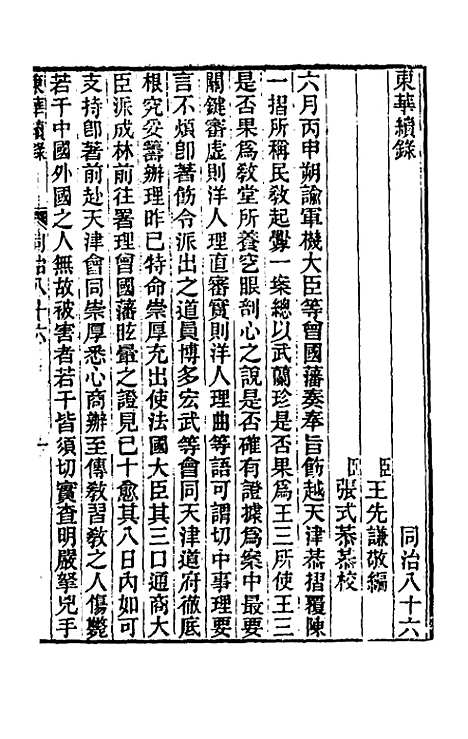 東華續錄　同治八十六
臣王先謙敬編
臣張式恭恭校
六月丙申朔諭軍機大臣等曾國藩奏奉旨飭越天津恭摺覆陳
一摺所稱民教起釁一案總以武蘭珍是否果為王三所使王三
是否果為教堂所養挖眼剖心之說是否確有證據為案中最要
關鍵審虛則洋人理直審實則洋人理曲等語可謂切中事理要
言不煩卽著飭令派出之道員博多宏武等會同天津道府徹底
根究妥籌辦理昨已特命崇厚充出使法國大臣其三口通商大
臣派成林前往署理曾國藩眩暈之證見已十愈其八日內如可
支持卽著前赴天津會同崇厚悉心商辦至傳教習教之人傷斃
若干中國外國之人無故被害者若干皆須切實查明嚴拏兇手
東華續錄　同治八十六　一